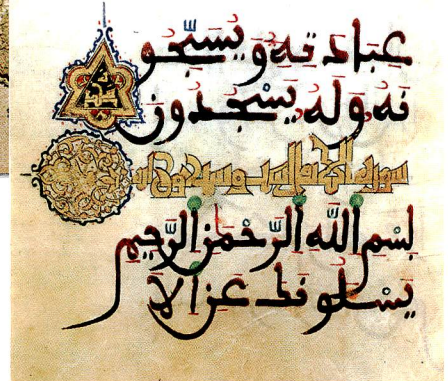 عبادته ويسبحو
نه وله يسجدون
سورة الانفال ست وسبعون اية
بسم الله الرحمن الرحيم
يسلونك عن الا